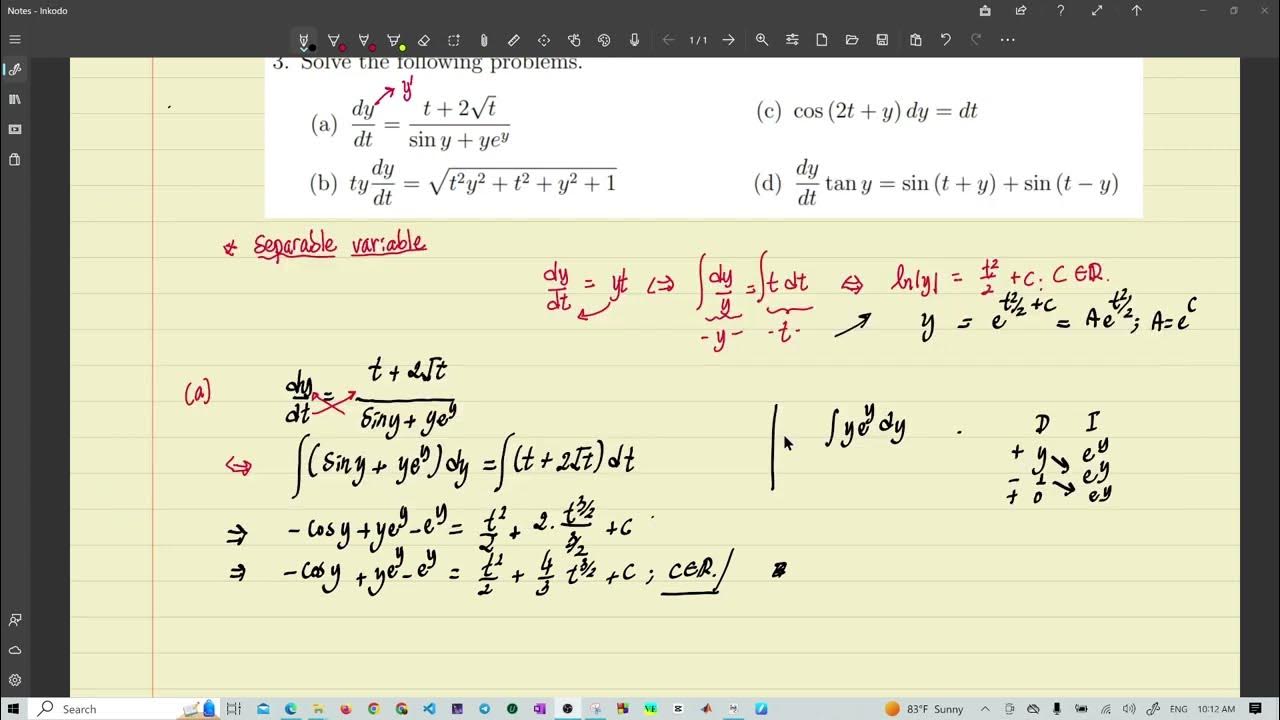 Notes - Inkodo
1/1
3. Solve the following problems.
y'
(a) dy/dt = (t + 2√t)/(sin y + ye^y)
(c) cos (2t + y) dy = dt
(b) ty dy/dt = √(t²y² + t² + y² + 1)
(d) dy/dt tan y = sin (t + y) + sin (t − y)
* Separable variable
dy/dt = yt <=> ∫ dy/y = ∫ t dt <=> ln|y| = t²/2 + C; C ∈ ℝ.
-y- -t- y = e^(t²/2 + C) = Ae^(t²/2); A = e^C
(a) dy/dt = (t + 2√t)/(siny + ye^y)
<=> ∫(siny + ye^y) dy = ∫(t + 2√t) dt
=> -cosy + ye^y - e^y = t²/2 + 2. t^(3/2)/(3/2) + C
=> -cosy + ye^y - e^y = t²/2 + 4/3 t^(3/2) + C ; C∈ℝ. /
∫ye^y dy
D I
+ y e^y
- 1 e^y
+ 0 e^y
Search
83°F Sunny
ENG
10:12 AM